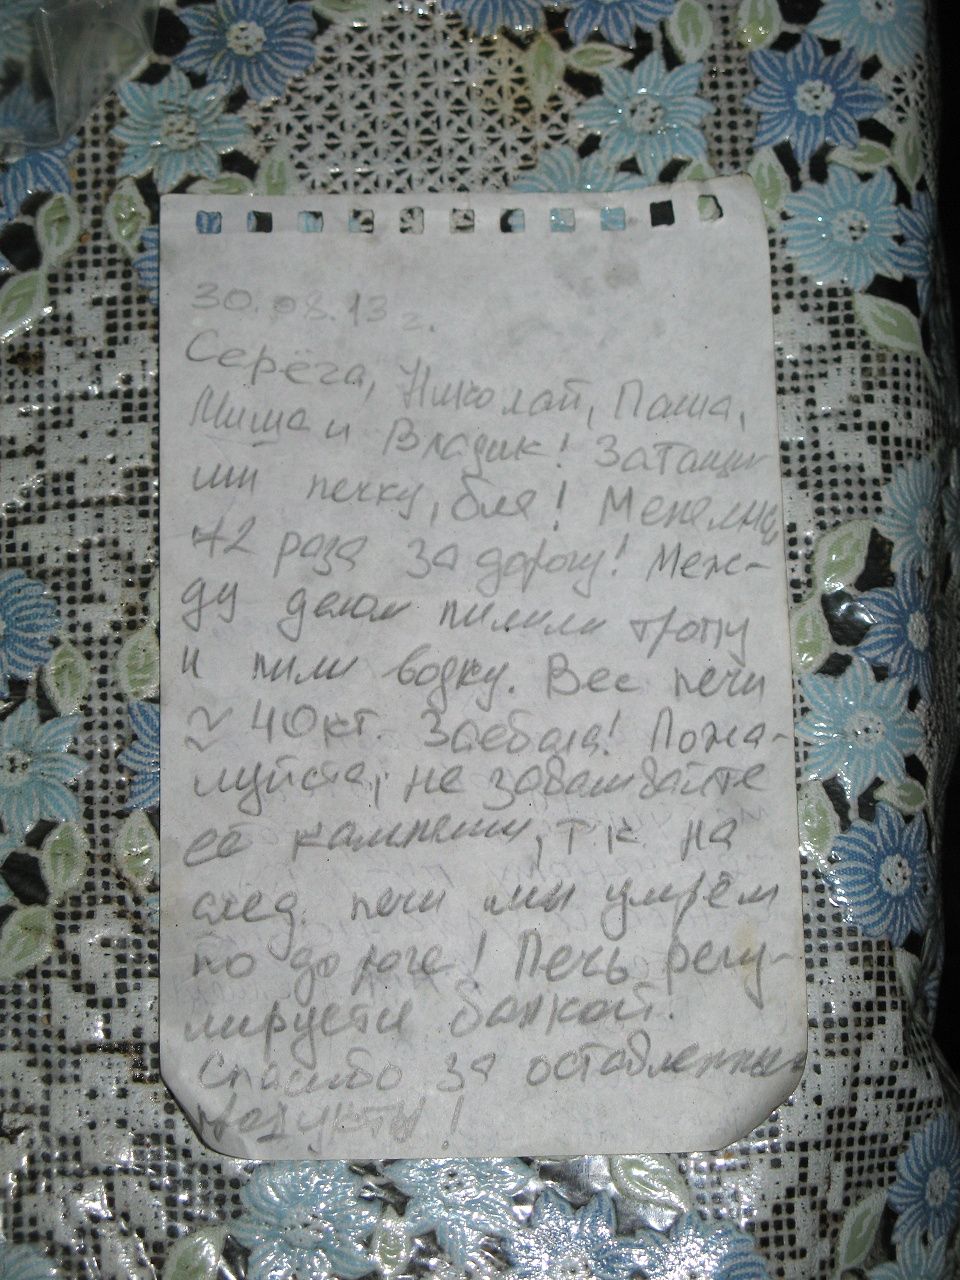 30.08.13 г.
Серёга, Николай, Паша,
Миша и Владик! Затащи-
ли печку, бля! Менялись
42 раза за дорогу! Меж-
ду делом пилили тропу
и пили водку. Вес печи
≈ 40кг. Заебала! Пожа-
луйста, не заваливайте
её камнями, т.к на
след. печи мы умрём
по дороге! Печь регу-
лируется банкой.
Спасибо за оставленные
продукты!